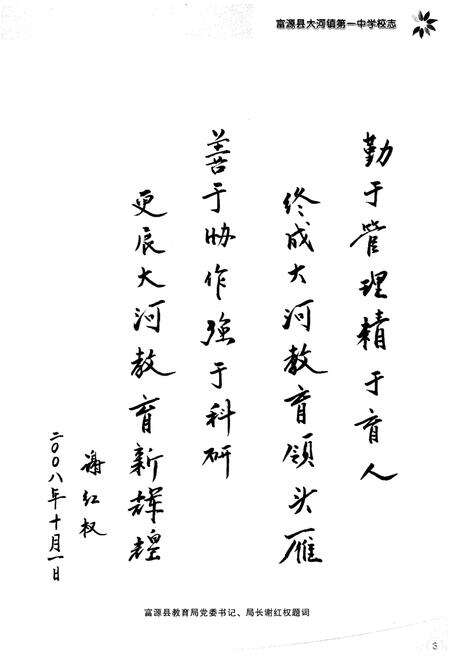 富源县大河镇第一中学校志
勤于管理精于育人
终成大河教育领头雁
善于协作强于科研
更展大河教育新辉煌
谢红权
二〇〇八年十月一日
富源县教育局党委书记、局长谢红权题词